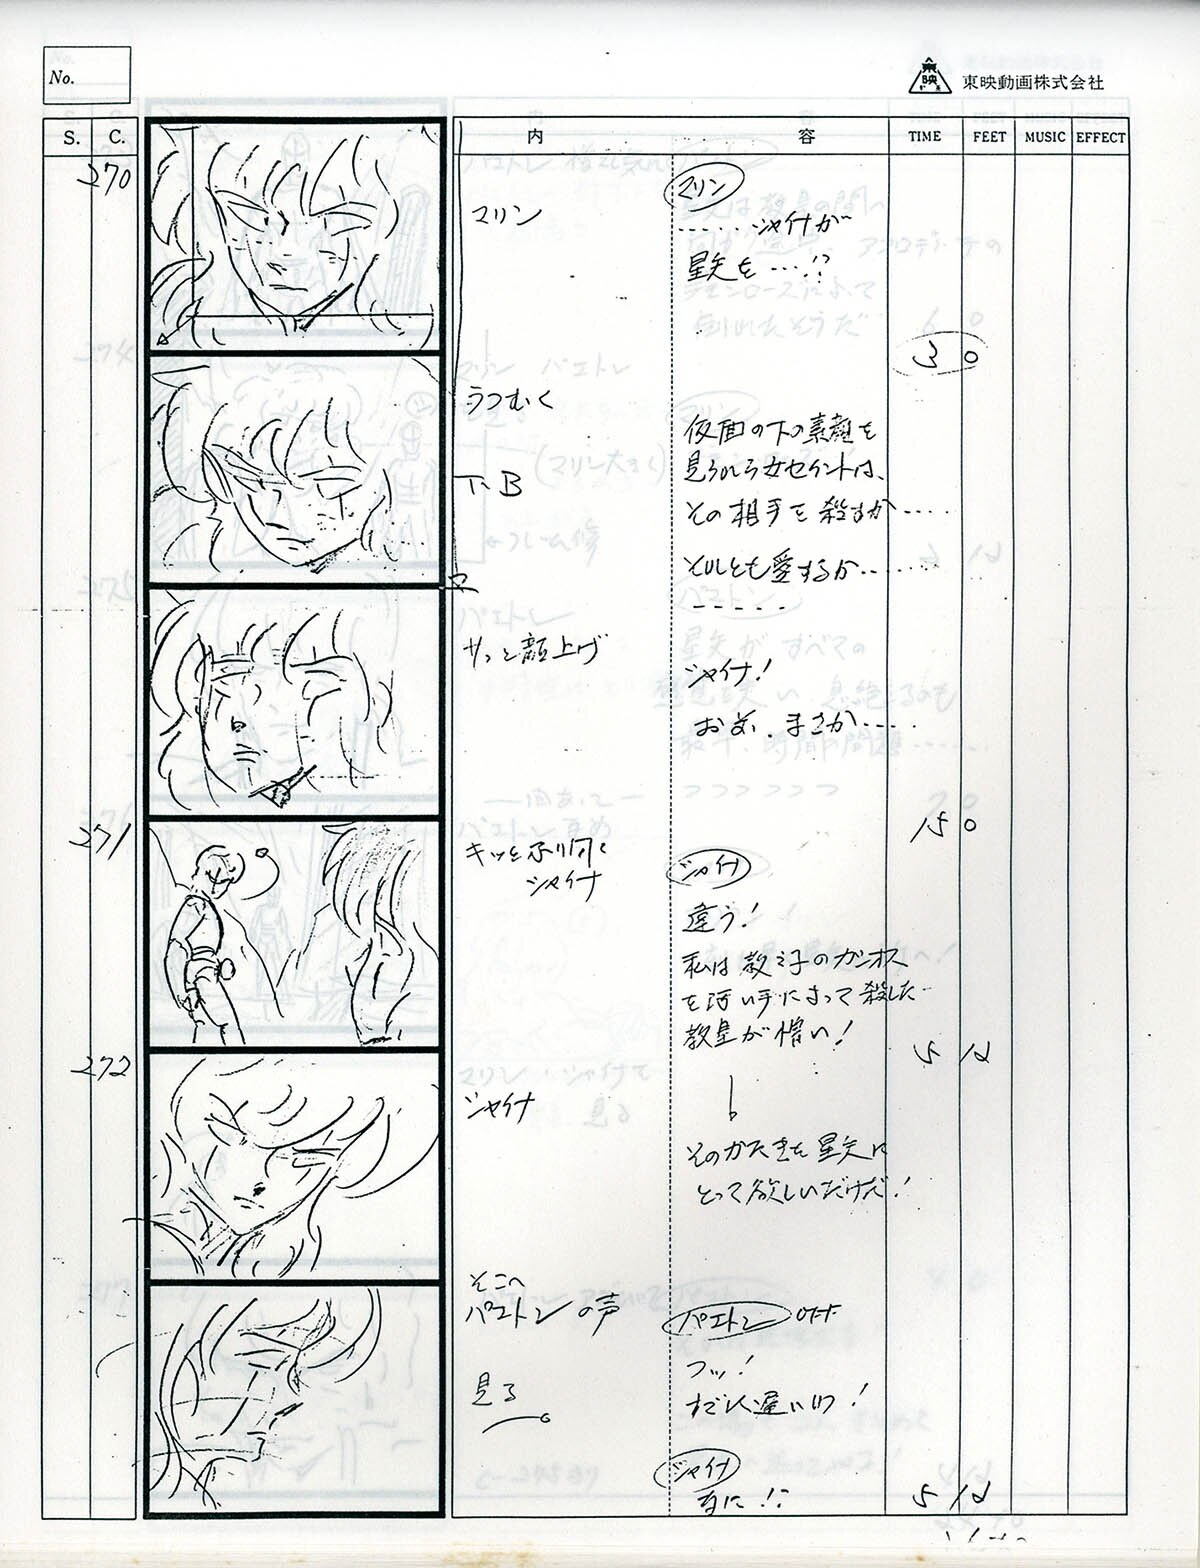 No.
東映
東映動画株式会社
S. C. 内 容 TIME FEET MUSIC EFFECT
270
マリン
マリン
……シャイナが
星矢を…!?
3 0
うつむく
T.B
仮面の下の素顔を
見られる女セイントは、
その相手を殺すか……
それとも愛するか……
サッと顔上げ
シャイナ!
お前、まさか……
15 0
271
キッとふり向く
シャイナ
シャイナ
違う!
私は教え子のカシオス
を
手によって殺した
教皇が憎い!
5 12
272
シャイナ
そのかたきを星矢に
とって欲しいだけだ!
そこへ
パエトンの声
パエトン OFF
フッ!
見る
シャイナ
なに!?
5 12